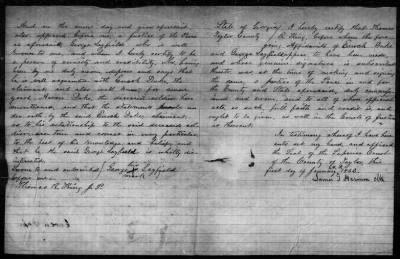 And on the same day and year aforesaid
also appeared before me, a Justice of the Peace
as aforesaid George Layfield who is well
known to me, and whom I hereby certify to be
a person of veracity and credibility, who having
been by me duly sworn deposes and says that
he is well acquainted with Enoch Duke, the
claimant and also well knew for some
years Duke the deceased soldier
mentioned, and that the statements
by the said Enoch Duke, claimant,
as to his relationship to the said deceased
are true and correct in every particular
to the best of his knowledge and belief; and
that he the said George Layfield is wholly dis
interested.
Sworn to and subscribed George his Layfield
before me mark
Thomas R. King, J. P.
State of Georgia I hereby certify that Thomas
Taylor County R. King, before whom the fore
going affidavits of Enoch Duke
and George Layfield were
and whose genuine signature is subscribed
thereto, was at the time of making and signing
the same a Justice of the Peace in and for
the County and State aforesaid, duly commis
and sworn, and all of whose official
acts as such full faith and credit is and
ought to be given, as well in the Courts of Justice
as thereout.
In testimony whereof I have here
unto set my hand and affixed
the Seal of the Superior Court
of the County of Taylor, this
first day of January
Clk